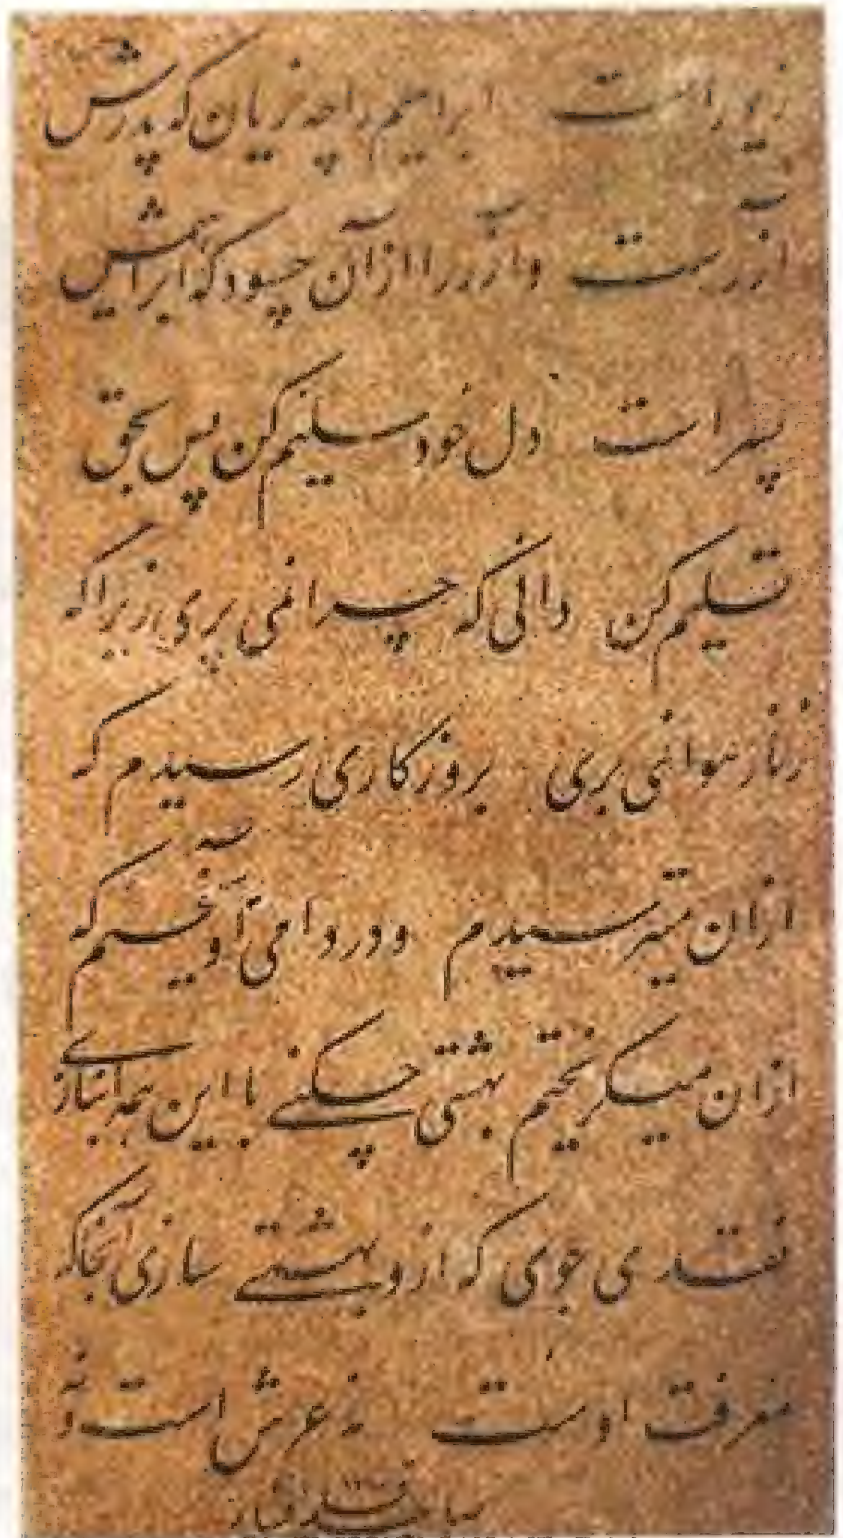 زیور است ابراهیم را چه زیان که پدرش
آزرست و آزر را از آن چه سود که ابراهیمش
پسر است دل خود سلیم کن پس بحق
تسلیم کن دانی که چرا نمی پری از زیراکه
زناز هوا نمی بری بروزکاری رسیدم که
ازان میترسیدم و دردامی آویختم که
ازان میگریختم بهشتی چکنی با این همه انبازی
نقدی جوی که ازو بهشتی سازی آنجا که
معرفت اوست نه عرش است و نه